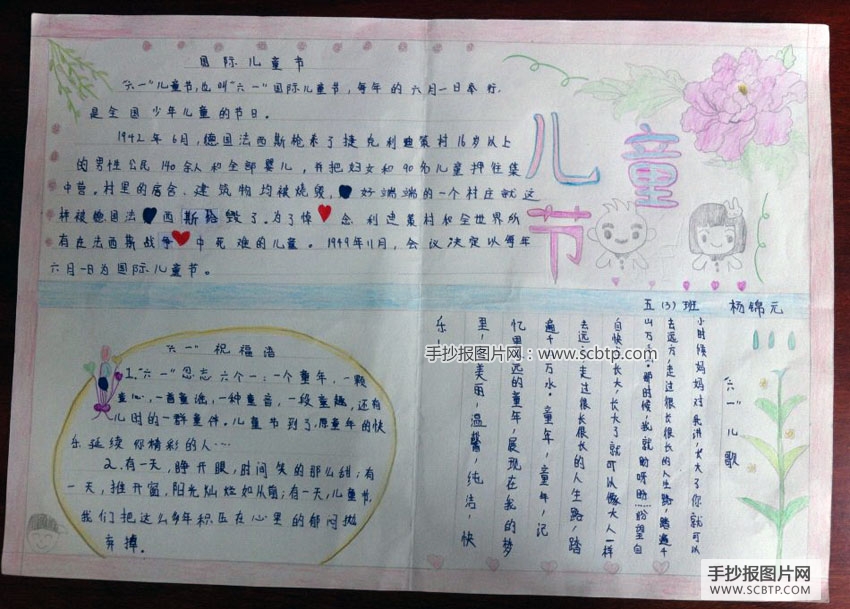 国际儿童节
"六一"儿童节,也叫"六一"国际儿童节,每年的六月一日举行,
是全国少年儿童的节日。
1942年6月,德国法西斯枪杀了捷克利迪策村16岁以上
的男性公民140余人和全部婴儿,并把妇女和90名儿童押往集
中营。村里的房舍、建筑物均被烧毁,好端端的一个村庄就这
样被德国法西斯给毁了。为了悼念利迪策村和全世界所
有在法西斯战争中死难的儿童。1949年11月,会议决定以每年
六月一日为国际儿童节。
儿童
节
五(3)班 杨锦元
"六一"儿歌
小时候妈妈对我讲,大了你就可以
去远方,走过很长很长的人生路,踏遍千
山万水。那时候,我就盼呀盼……盼望自
自快快长大,长大了就可以像大人一样
去远方,走过很长很长的人生路,踏
遍千万水。童年,童年,记
忆里遥远的童年,展现在我的梦
里,美丽,温馨,纯洁,快
乐
"六一"祝福语
1."六一"
六个一:一个童年,一颗
童心,一首童谣,一种童音,一段童趣,还有
儿时的一群童伴。儿童节到了,愿童年的快
乐延续你精彩的人…
2.有一天,睁开眼,时间笑的那么甜;有
一天,推开窗,阳光灿烂如从前;有一天,儿童节,
我们把这么多年积压在心里的郁闷抛
弃掉。
手抄报图片网:www.scbtp.com
手抄报图片网
WWW.SCBTP.COM